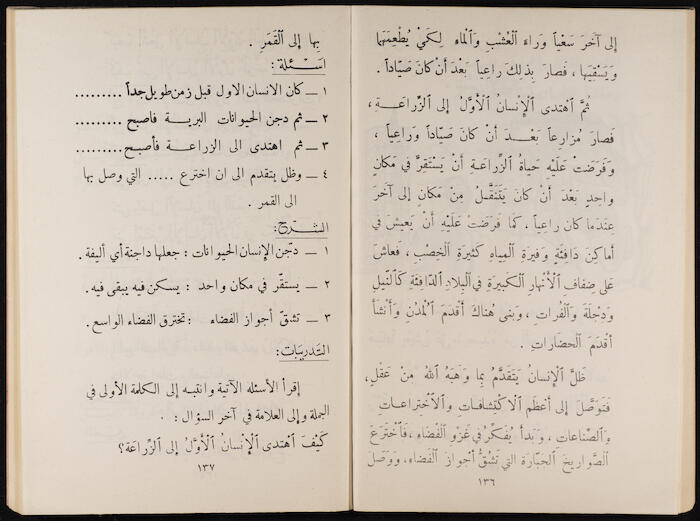 إِلى آخَرَ سَعْياً وَراءَ ٱلْعُشْبِ وَٱلْماءِ لِكَيْ يُطْعِمَها
وَيَسْقِيَها ، فَصارَ بِذلِكَ راعِياً بَعْدَ أَنْ كانَ صَيّاداً .
ثُمَّ ٱهْتدى ٱلْإِنْسانُ ٱلْأَوَّلُ إِلى ٱلزِّراعَـةِ ،
فَصارَ مُزارِعاً بَعْـدَ أَنْ كانَ صَيّاداً وَراعِياً ،
وَفَرَضَتْ عَلَيْهِ حَياةُ ٱلزِّراعَةِ أَنْ يَسْتَقِرَّ في مَكانٍ
واحِدٍ بَعْدَ أَنْ كانَ يَتَنَقَّـلُ مِنْ مَكانٍ إِلى آخَرَ
عِنْدَما كان راعِياً ، كَما فَرَضَتْ عَلَيْهِ أَنْ يَعيشَ في
أَماكِنَ دافِئَةٍ وَفيرَةِ ٱلْمِياهِ كَثيرَةِ ٱلْخِصْبِ ، فَعاشَ
عَلى ضِفافِ ٱلْأَنْهارِ ٱلْكَبيرَةِ في ٱلْبِلادِ ٱلدّافِئَةِ كَٱلنّيلِ
وَدِجْلَةَ وَٱلْفُراتِ ، وَبَنى هُناكَ أَقْدَمَ ٱلْمُدُنِ وَأَنْشَأَ
أَقْدَمَ ٱلْحَضاراتِ .
ظَلَّ ٱلْإِنْسانُ يَتَقَدَّمُ بِما وَهَبَهُ ٱللهُ مِنْ عَقْلٍ ،
فَتَوَصَّلَ إِلى أَعْظَمِ ٱلْاكْتِشافـاتِ وَٱلْاخْتِراعـاتِ
وَٱلصِّناعاتِ ، وَبَدأَ يُفَكِّرُ في غَزْوِ ٱلْفَضاءِ ، فَٱخْتَرَعَ
ٱلصَّواريخَ ٱلْجَبّارَةَ التي تَشُقُّ أَجْوازَ ٱلْفَضاءِ، وَوَصَلَ
١٣٦
بِها إِلى ٱلْقَمَرِ .
اسْئلة :
١ ــ كان الانسان الاول قبل زمن طويل جداً .........
٢ ــ ثم دجن الحيوانات البرية فاصبح .........
٣ ــ ثم اهتدى الى الزراعة فأصبح .........
٤ ــ وظل يتقدم الى ان اخترع ..... التي وصل بها
الى القمر .
الشرح :
١ ــ دجّن الإنسان الحيوانات : جعلها داجنة أي أليفة .
٢ ــ يستقّر في مكان واحد : يسكن فيه يبقى فيه .
٣ ــ تشقّ أجواز الفضاء : تخترق الفضاء الواسع .
التدريبات :
إقرأ الأسئله الآتية وانتبـه إلى الكلمة الأولى في
الجملة وإلى العلامة في آخر السؤال : .
كَيْفَ ٱهْتَدى ٱلْإِنْسانُ ٱلْأَوَّلُ إِلى ٱلزِّراعَة ؟
١٣٧